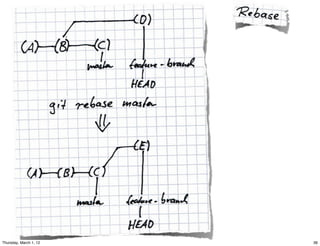 Rebase
(D)
(A)—(B)—(C)
master feature-branch
HEAD
git rebase master
(E)
(A)—(B)—(C)
master feature-branch
HEAD
Thursday, March 1, 12